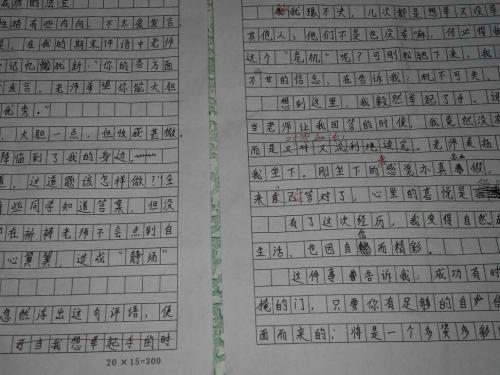 成功的法宝
性格有些内向，不太爱发言
是，在我的期末评语中老师
记忆犹新：“你的各方面
发言。老师希望你能大胆
优秀。”
，大胆一点，但收获甚微。
降临到了我的身边
道，这道题该怎样做？”全
有些同学知道答案，但没
都在祈祷老师不会点到自
心翼翼，造成“静场”
忽然浮出这句评语，便
可当我想举起手的时
20×15=300
犹豫不决，几次都是想举又没举
其他人，他们不是也没举嘛，何必得
这个“危机”呢？可刚松驰下来，我
不甘的信念，在告诉我：机不可失，
想到这里，我毅然举起了手。
当老师让我回答的时候，我竟然没有
而是又对又流利地读完。老师表扬
我坐下。刚坐下的感觉亦真亦假，
来自己答对了，心里的喜悦是
有了这次经历，我变得自然
生活，也因自信而精彩。
这件事告诉我：成功有时
掩的门，只要你有足够的自信
面而来的，将是一个多姿多彩